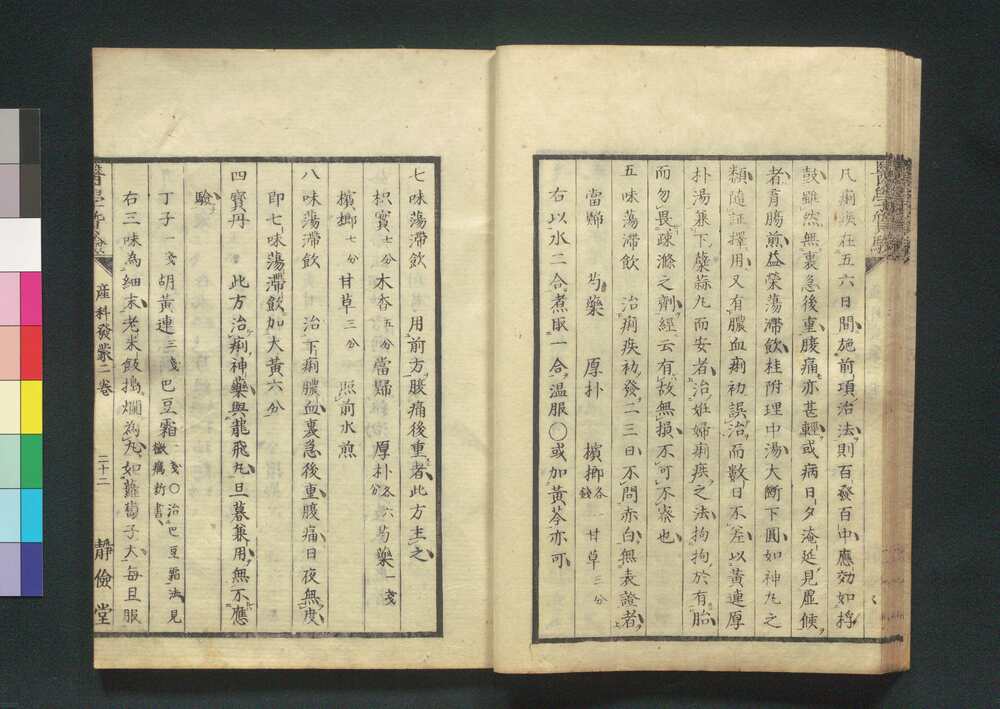 凡痢疾在五六日間施前項治法則百發百中應効如桴
鼓雖然無裏急後重腹痛亦甚輕或病日夕淹延見虛候
者胃腸煎益榮蕩滯飲桂附理中湯大斷下圓如神丸之
類隨証擇用又有膿血痢初誤治而數日不差以黃連厚
朴湯兼下蘗蒜丸而安者治姙婦痢疾之法拘拘於有胎
而勿畏疎滌之劑經云有故無損不可不察也
五味蕩滯飲　治痢疾初發二三日不問赤白無表證者
當歸　芍藥　厚朴　檳榔各錢　甘草三分
右以水二合煮取一合溫服〇或加黃芩亦可
七味蕩滯飲　用前方腹痛後重者此方主之
枳實七分 木香五分 當歸　厚朴各六分 芍藥一戔
檳榔七分 甘草三分　照前水煎
八味蕩滯飲　治下痢膿血裏急後重腹痛日夜無度
即七味蕩滯飲加大黃六分
四寶丹　此方治痢神藥與龍飛丸旦暮兼用無不應
驗
丁子一戔 胡黃連三戔 巴豆霜一戔〇治巴豆霜法見徽瘡新書
右三味為細末老米飯搗爛為丸如蘿蔔子大每旦服
產科發蒙二卷
二十二
靜儉堂